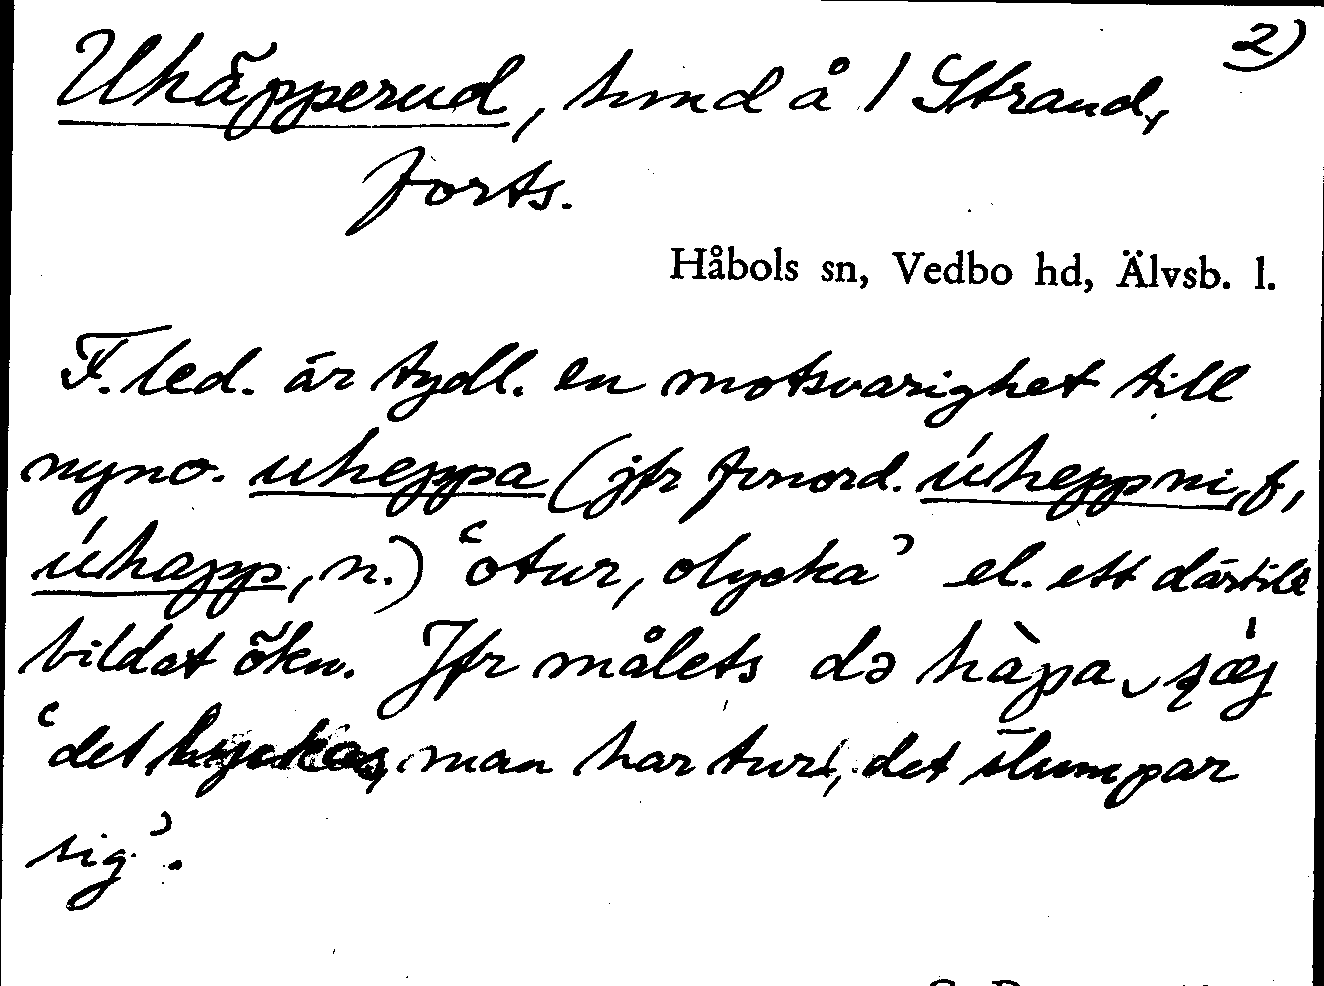 2)
Uhäpperud, hmd å 1 Strand,
forts.
Håbols sn, Vedbo hd, Älvsb. l.
F. led. är tydl. en motsvarighet till
nyno. uheppa (jfr fvnord. úheppni, f,
úhapp, n.) ‘otur, olycka’ el. ett därtill
bildat ökn. Jfr målets də hàpa
‘det lyckas, man har tur, det slumpar
sig’.